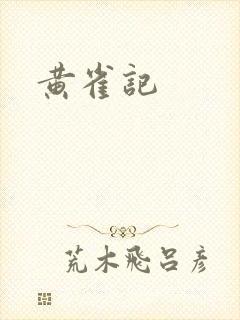 黄雀記
荒木飛呂彦